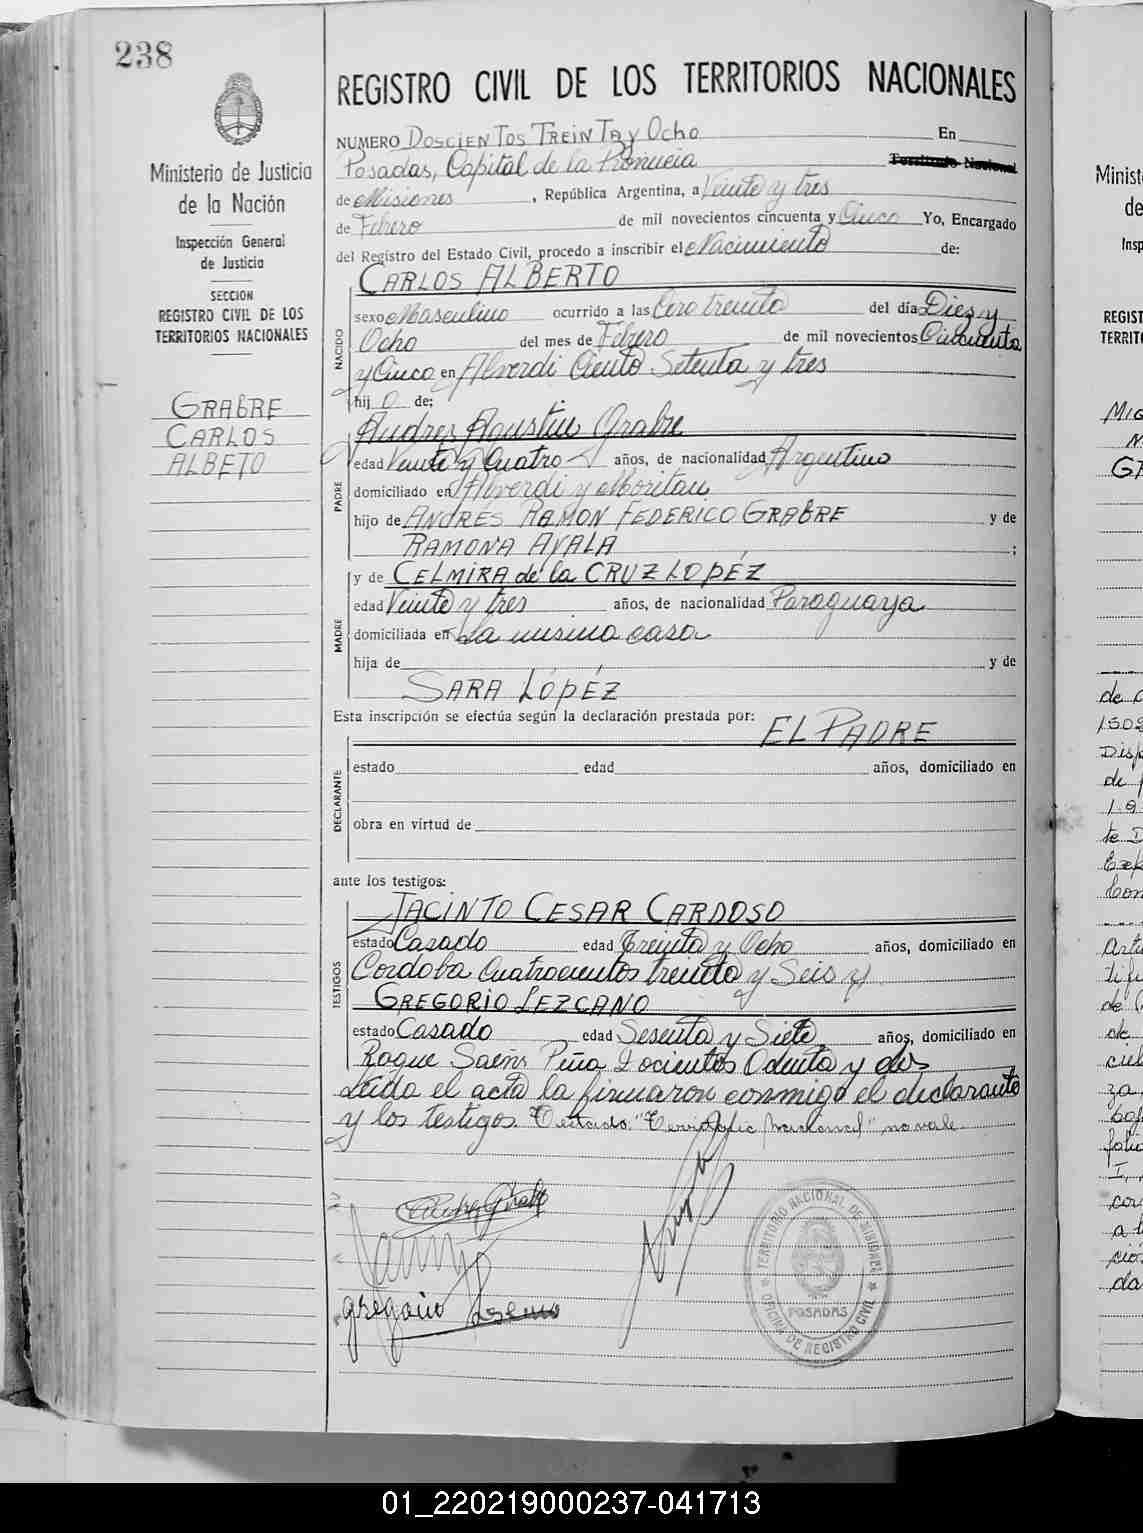 238
Ministerio de Justicia
de la Nación
Inspección General
de Justicia
SECCION
REGISTRO CIVIL DE LOS
TERRITORIOS NACIONALES
GRABRE
CARLOS
ALBETO
REGISTRO CIVIL DE LOS TERRITORIOS NACIONALES
NUMERO DOSCIENTOS TREINTA y Ocho En
Posadas, Capital de la Provincia Territorio Nacional
de Misiones, República Argentina, a Veinte y tres
de Febrero de mil novecientos cincuenta y Cinco Yo, Encargado
del Registro del Estado Civil, procedo a inscribir el Nacimiento de:
CARLOS ALBERTO
NACIDO
sexo Masculino ocurrido a las Cero treinta del día Diez y
Ocho del mes de Febrero de mil novecientos Cincuenta
y Cinco en Alverdi Ciento Setenta y tres
hij o de:
Andres Agustin Grabre
PADRE
edad Veinte y Cuatro años, de nacionalidad Argentino
domiciliado en Alverdi y
hijo de ANDRÉS RAMON FEDERICO GRABRE y de
RAMONA AYALA ;
y de CELMIRA de la CRUZ LOPÉZ
MADRE
edad Veinte y tres años, de nacionalidad Paraguaya
domiciliada en La misma casa
hija de y de
SARA LÓPÉZ
Esta inscripción se efectúa según la declaración prestada por: EL PADRE
DECLARANTE
estado edad años, domiciliado en
obra en virtud de
ante los testigos:
JACINTO CESAR CARDOSO
TESTIGOS
estado Casado edad Treinta y Ocho años, domiciliado en
Cordoba Cuatrocientos treinta y Seis y
GREGORIO LEZCANO
estado Casado edad Sesenta y Siete años, domiciliado en
Roque Saéns Peña Docientos Ochenta y dos
Leida el acta la firmaron conmigo el declarante
y los testigos. Testado: "Territorio Nacional" no vale.
Gregorio
TERRITORIO NACIONAL DE MISIONES
POSADAS
OFICINA DE REGISTRO CIVIL
01_220219000237-041713